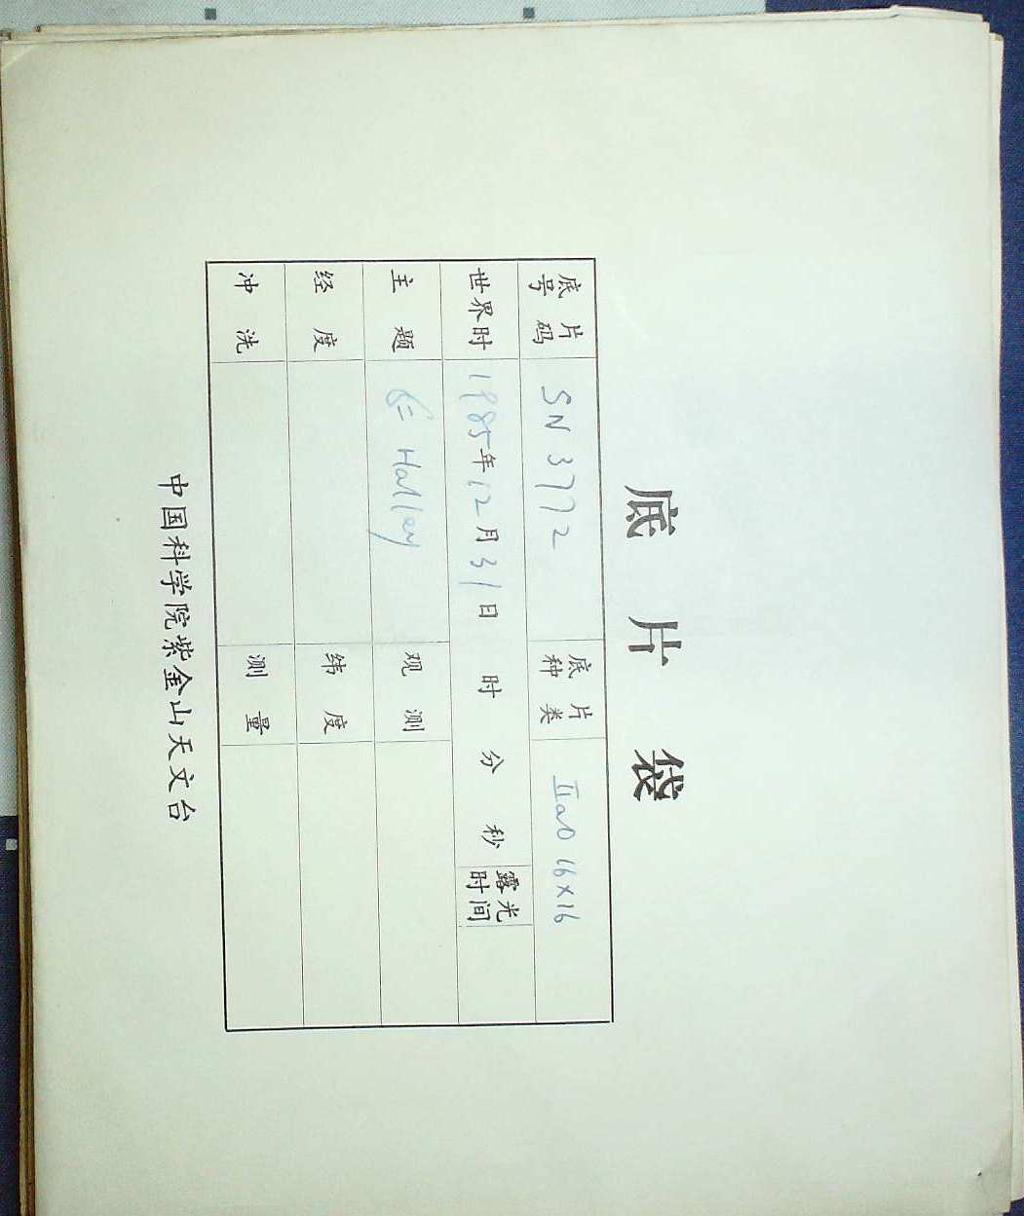 底片袋
底片号码 SN 3772 底片种类 IIaO 16×16
世界时 1985年12月31日 时 分 秒 露光时间
主题 Halley 观测
经度 纬度
冲洗 测量
中国科学院紫金山天文台